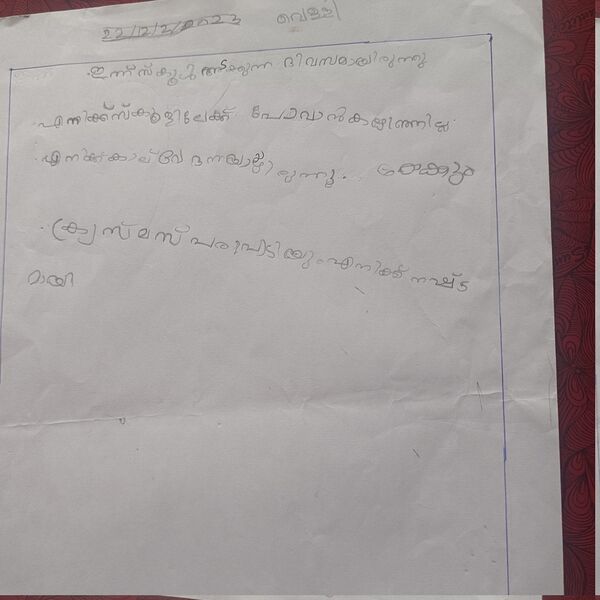 22/12/2023 വെള്ളി
.ഇന്ന് സ്കൂൾ അടക്കുന്ന ദിവസമായിരുന്നു
.എനിക്ക് സ്കൂളിലേക്ക് പോവാൻ കഴിഞ്ഞില്ല.
.എനിക്ക് കാല് വേദനയായിരുന്നു..
. ക്രസ്മസ് പരുപാടിയും എനിക്ക് നഷ്ട
മായി